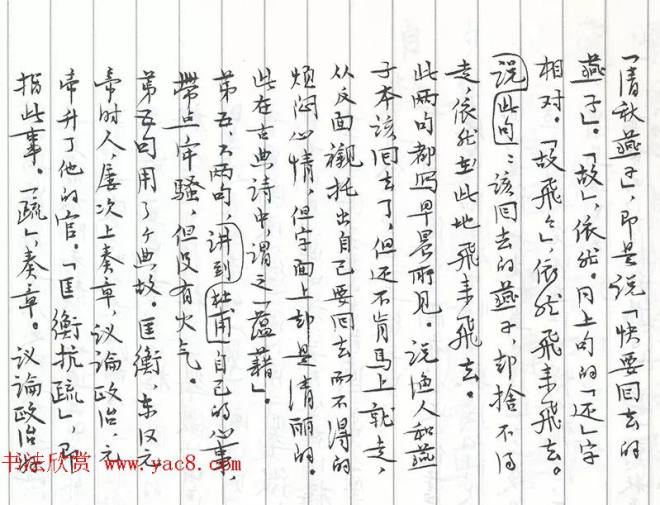 「清秋燕子」，即是说「快要回去的
燕子」。「故」，依然。同上句的「还」字
相对。「故飞々」，依然飞来飞去。
说此句：该回去的燕子，却捨不得
走，依然在此地飞来飞去。
此两句都写早晨所见。说渔人和燕
子本该回去了，但还不肯马上就走，
从反面襯托出自己要回去而不得的
烦闷心情，但字面上却是清丽的。
此在古典诗中，谓之「蕴藉」。
第五、六两句，讲到杜甫自己的心事，
带点牢骚，但没有火气。
第五句用了个典故。匡衡，东汉元
帝时人，屡次上奏章，议论政治，元
帝升了他的官。「匡衡抗疏」，即
指此事。「疏」，奏章。议论政治
书法欣赏 www.yac8.com